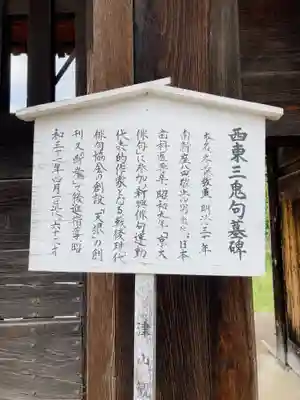 西東三鬼句墓碑
本名斎藤敬直、明治三十三年
南新座八田榴山の男に生、日本
歯科医専卒、昭和九年「京大
俳句」に参加、新興俳句運動
代表的作家となる。戦後現代
俳句協会の創設「天狼」の創
刊又郷党にて後進指導、昭
和三十七年四月一日没、六十二才
津山観